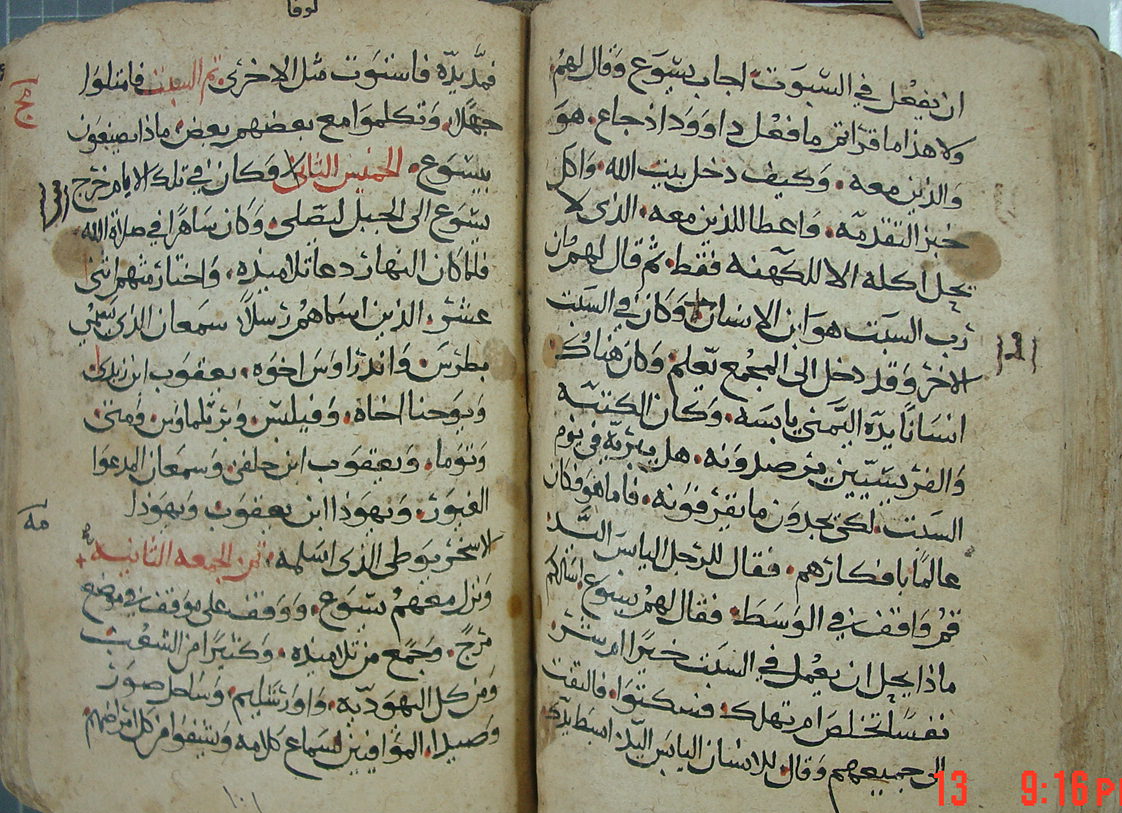 ان يفعل في السبوت اجاب يسوع وقال لهم
ولا هذا ما قراتم ما فعل داوود اذ جاع هو
والذين معه وكيف دخل بيت الله واكل
خبز التقدمه واعطا للذين معه الذي لا
يحل اكله الا للكهنه فقط ثم قال لهم ان
رب السبت هو ابن الانسان وكان في السبت
الاخر وقد دخل الى المجمع يعلم وكان هناك
انسانًا يده اليمنى يابسه وكان الكتبه
والفريسيين يرصدونه هل يبريه في يوم
السبت لكي يجدون ما يقرفونه فاما هو فكان
عالمًا بافكارهم فقال للرجل اليابس اليد
قم واقف في الوسط فقال لهم يسوع اسالكم
ماذا يحل ان يعمل في السبت خيرًا ام شر
نفسًا تخلص ام تهلك فسكتوا فالتفت
الى جميعهم وقال للانسان اليابس اليد ابسط يدك
لوقا
فمد يده فاستوت مثل الاخرى تم السبت فامتلوا
جهلًا وتكلموا مع بعضهم بعض ماذا يصنعون
بيسوع الخميس الثاني وكان في تلك الايام خرج
يسوع الى الجبل ليصلى وكان ساهرًا في صلاة الله
فلما كان النهار دعا تلاميذه واختار منهم اثني
عشر الذين اسماهم رسلًا سمعان الذي سمي
بطرس واندراوس اخوه يعقوب ابن زبدى
ويوحنا اخاه وفيلبس وبرتلماوس ومتى
وتوما ويعقوب ابن حلفى وسمعان المدعوا
الغيور ويهوذا ابن يعقوب ويهوذا
الاسخريوطي الذي اسلمه تم الجمعه الثانيه
ونزل معهم يسوع ووقف على موقف وموضع
مرج وجمع من تلاميذه وكثيرًا من الشعب
ومن كل اليهوديه واورشليم وساحل صور
وصيدا الموافيين لسماع كلامه ويشفوا من كل امراضهم
13 9:16 P